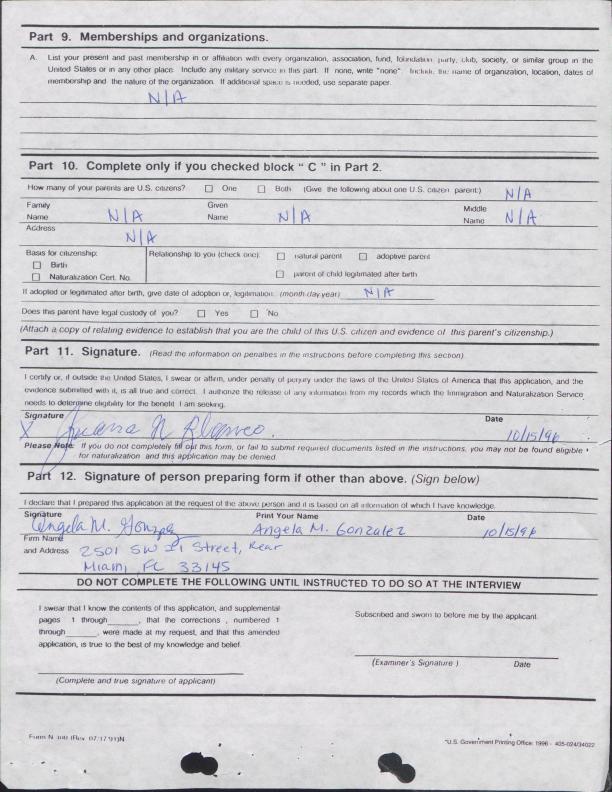 Part 9. Memberships and organizations.
A. List your present and past membership in or affiliation with every organization, association, fund, foundation, party, club, society, or similar group in the
United States or in any other place. Include any military service in this part. If none, write "none". Include the name of organization, location, dates of
membership and the nature of the organization. If additional space is needed, use separate paper.
N/A
Part 10. Complete only if you checked block " C " in Part 2.
How many of your parents are U.S. citizens? One Both (Give the following about one U.S. citizen parent:) N/A
Family Given Middle
Name N/A Name N/A Name N/A
Address
N/A
Basis for citizenship: Relationship to you (check one): natural parent adoptive parent
Birth
Naturalization Cert. No. parent of child legitimated after birth
If adopted or legitimated after birth, give date of adoption or, legitimation: (month/day/year) N/A
Does this parent have legal custody of you? Yes No
(Attach a copy of relating evidence to establish that you are the child of this U.S. citizen and evidence of this parent's citizenship.)
Part 11. Signature. (Read the information on penalties in the instructions before completing this section)
I certify or, if outside the United States, I swear or affirm, under penalty of perjury under the laws of the United States of America that this application, and the
evidence submitted with it, is all true and correct. I authorize the release of any information from my records which the Immigration and Naturalization Service
needs to determine eligibility for the benefit I am seeking.
Signature Date
X Juana N Blanco. 10/15/96
Please Note: If you do not completely fill out this form, or fail to submit required documents listed in the instructions, you may not be found eligible
for naturalization and this application may be denied.
Part 12. Signature of person preparing form if other than above. (Sign below)
I declare that I prepared this application at the request of the above person and it is based on all information of which I have knowledge.
Signature Print Your Name Date
Angela M. Gonzalez Angela M. Gonzalez 10/15/96
Firm Name
and Address 2501 SW 21 Street, Rear
Miami, FL 33145
DO NOT COMPLETE THE FOLLOWING UNTIL INSTRUCTED TO DO SO AT THE INTERVIEW
I swear that I know the contents of this application, and supplemental
pages 1 through , that the corrections , numbered 1
through , were made at my request, and that this amended
application, is true to the best of my knowledge and belief.
(Complete and true signature of applicant)
Subscribed and sworn to before me by the applicant.
(Examiner's Signature ) Date
Form N-400 (Rev. 07/17/91)N
*U.S. Government Printing Office: 1996 - 405-024/34022